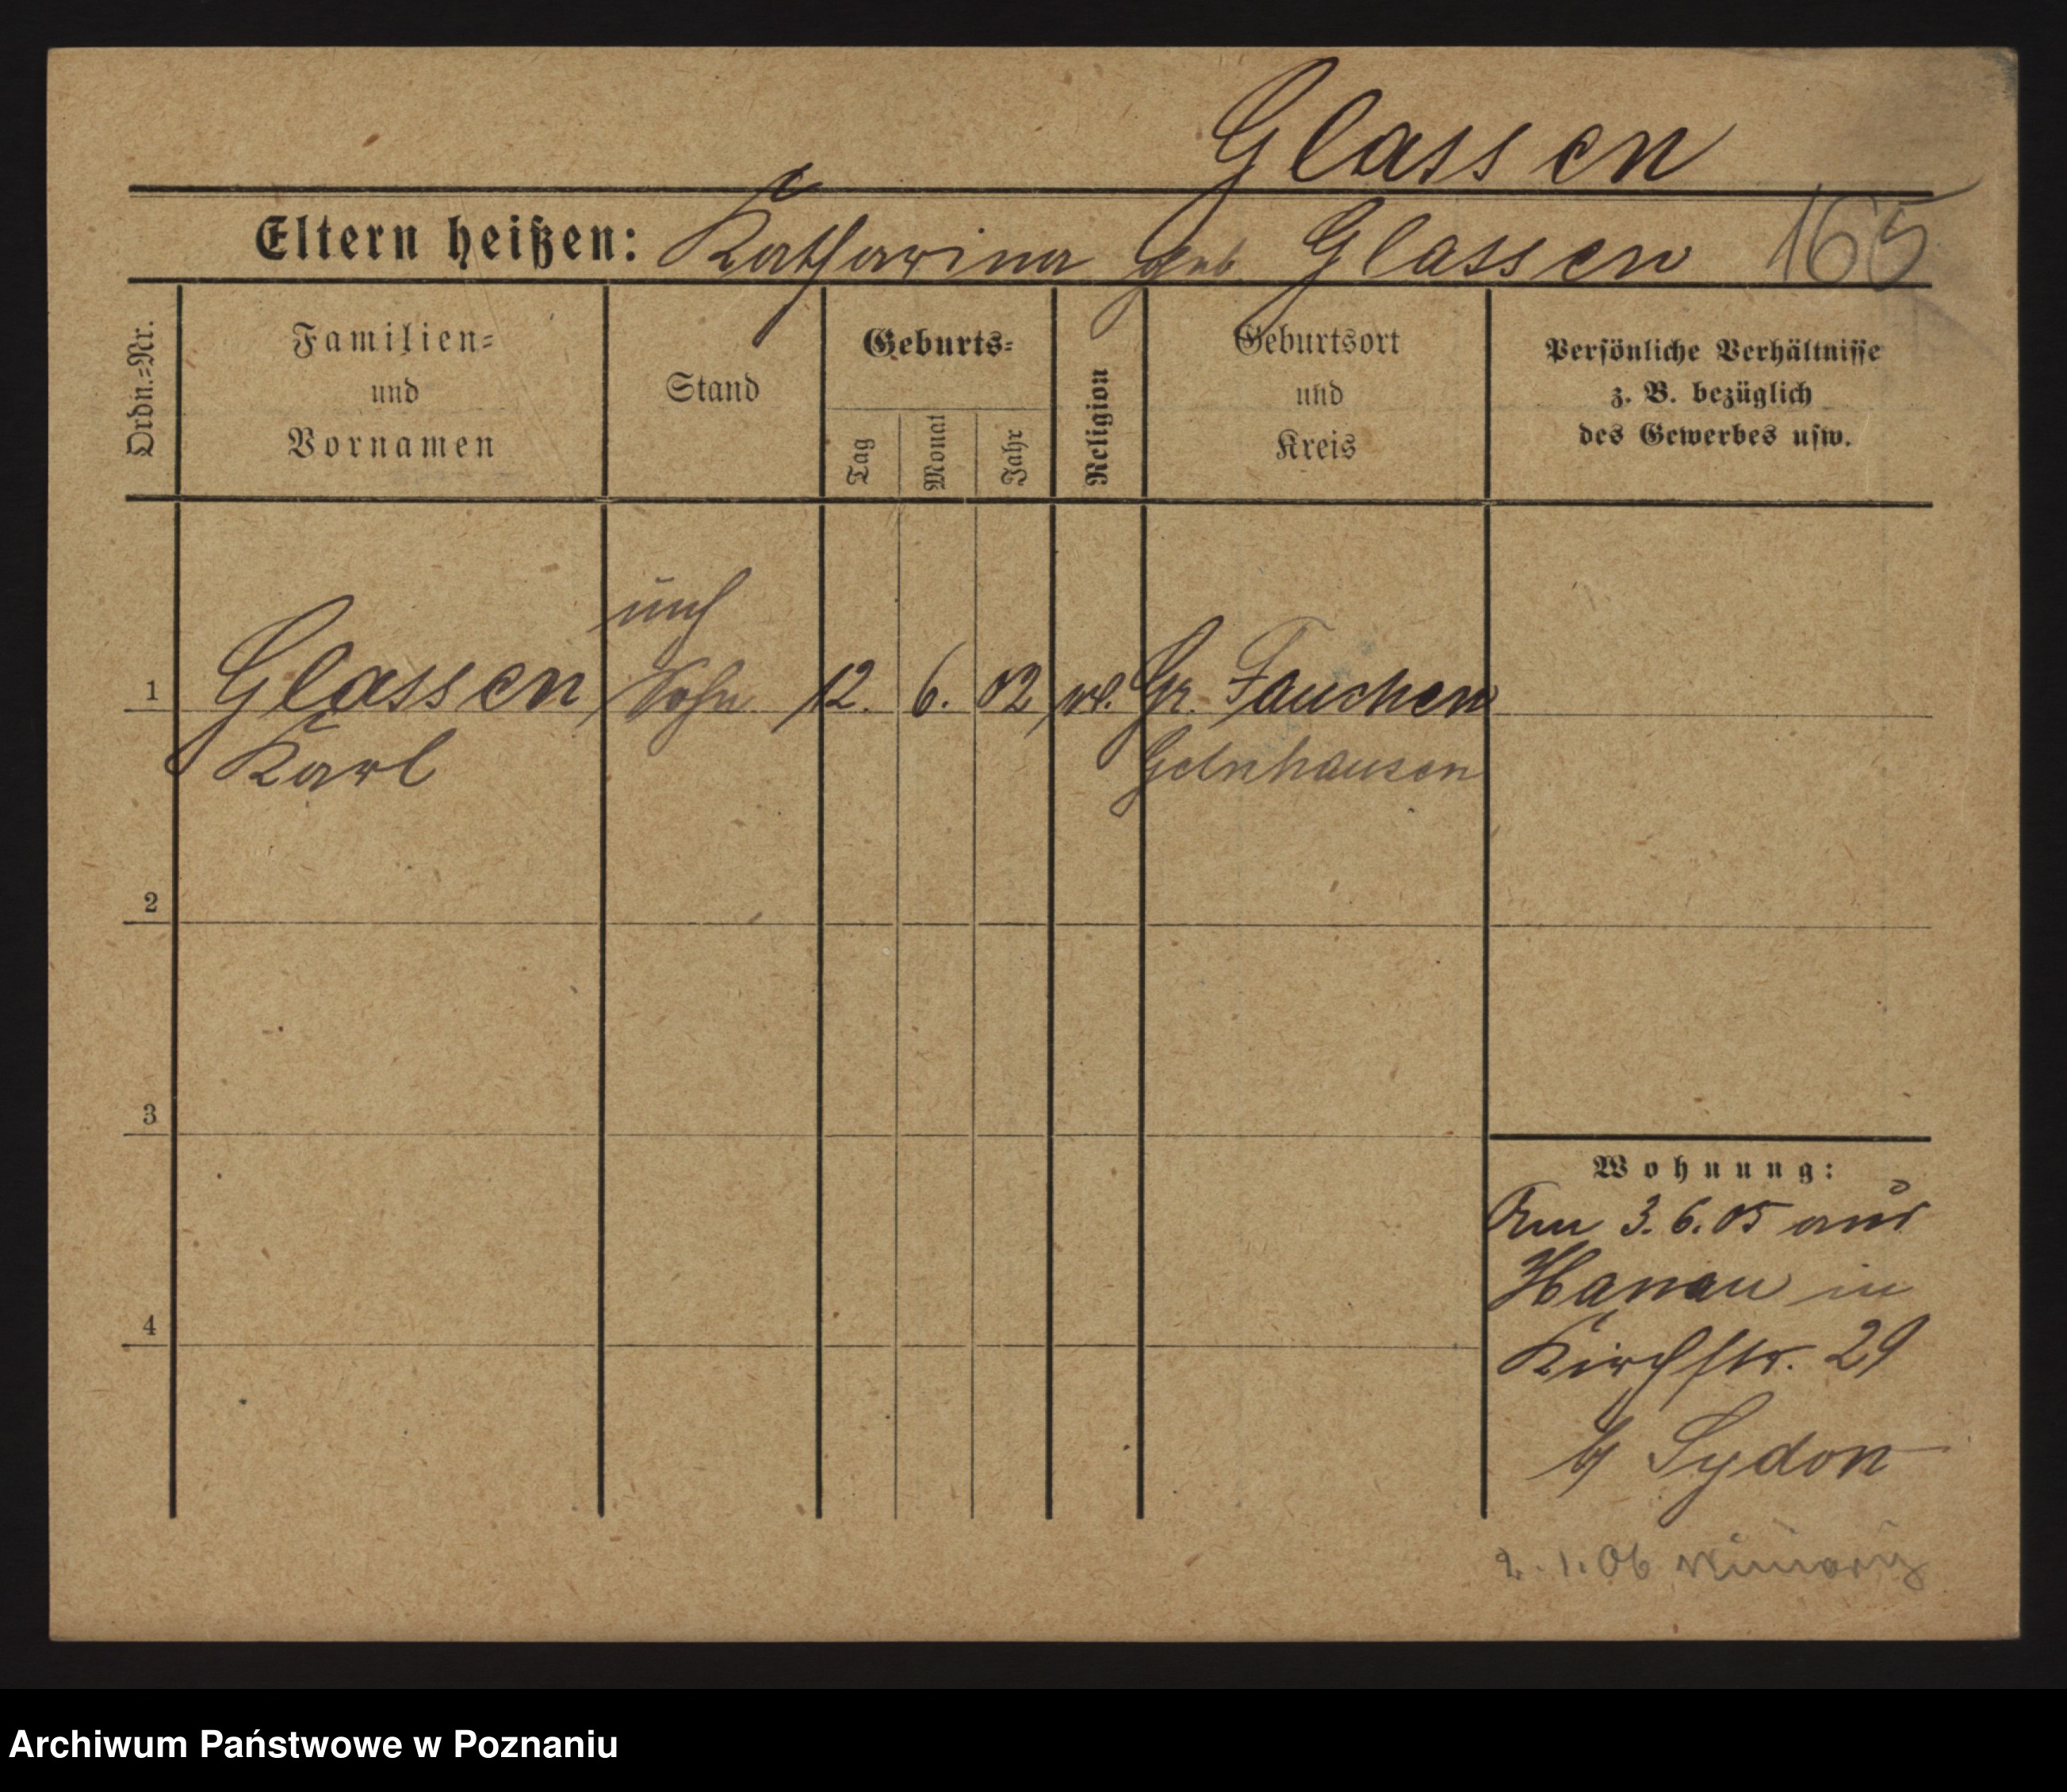 Glassen
Eltern heißen: Katharina geb Glassen 165
Ordn.=Nr.
Familien=
und
Vornamen
Stand
Geburts=
Tag
Monat
Jahr
Religion
Geburtsort
und
Kreis
Persönliche Verhältnisse
z. B. bezüglich
des Gewerbes usw.
1 Glassen Sohn 12. 6. 02 Gr. Fauchen
Karl Gelnhausen
2
3
4
Wohnung:
Am 3.6.05 aus
Hanau in
Kirchstr. 29
b/ Sydon
2.1.06
Archiwum Państwowe w Poznaniu